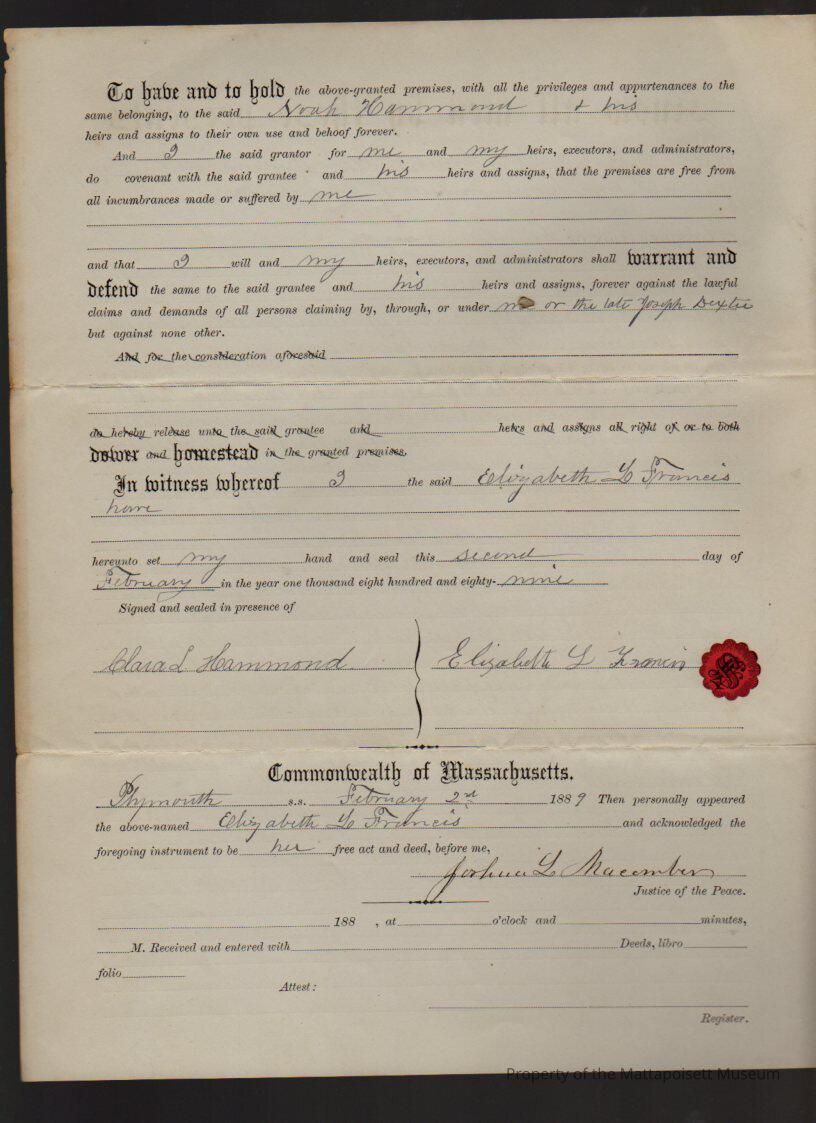 To have and to hold the above-granted premises, with all the privileges and appurtenances to the
same belonging, to the said Noah Hammond & his
heirs and assigns to their own use and behoof forever.
And I the said grantor for me and my heirs, executors, and administrators,
do covenant with the said grantee and his heirs and assigns, that the premises are free from
all incumbrances made or suffered by me
and that I will and my heirs, executors, and administrators shall warrant and
defend the same to the said grantee and his heirs and assigns, forever against the lawful
claims and demands of all persons claiming by, through, or under me or the late Joseph Dexter
but against none other.
And for the consideration aforesaid
do hereby release unto the said grantee and heirs and assigns all right of or to both
dower and homestead in the granted premises.
In witness whereof I the said Elizabeth L Francis
have
hereunto set my hand and seal this second day of
February in the year one thousand eight hundred and eighty-nine
Signed and sealed in presence of
Clara L Hammond Elizabeth L Francis
Commonwealth of Massachusetts.
Plymouth s.s. February 2nd 1889 Then personally appeared
the above-named Elizabeth L Francis and acknowledged the
foregoing instrument to be her free act and deed, before me,
Joshua L Macomber
Justice of the Peace.
188 , at o'clock and minutes,
M. Received and entered with Deeds, libro
folio
Attest:
Register.
Property of the Mattapoisett Museum